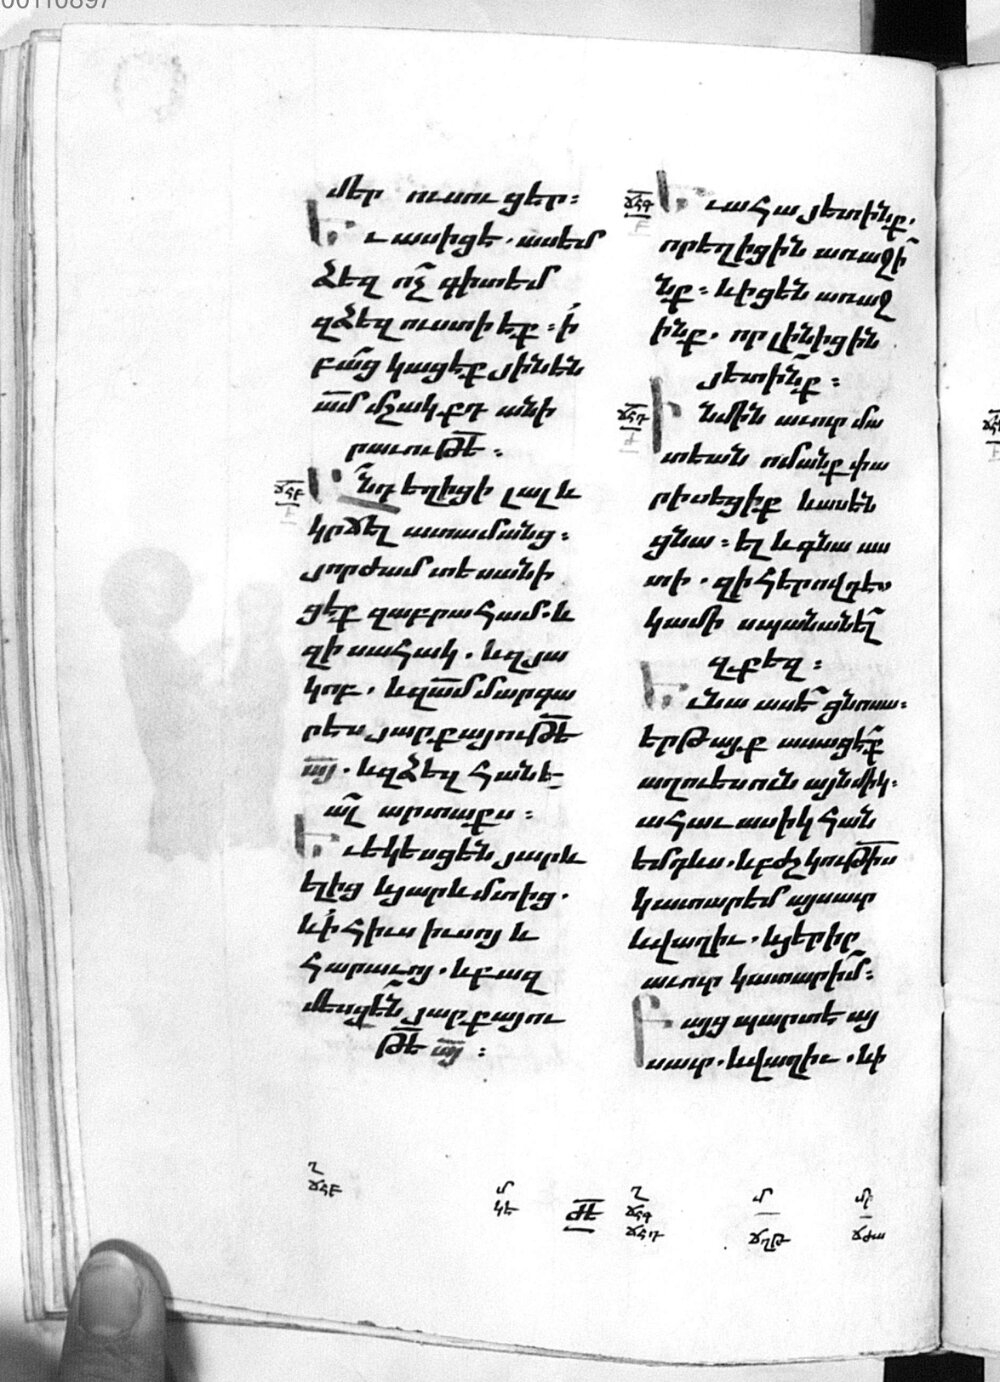 00110897
մեր ուսուցեր։
Եւ ասիցէ. ասեմ
ձեզ ո՛չ գիտեմ
զձեզ ուստի էք։ ի՛
բա՜ց կացէք յինէն
ա՜մ մշակքդ անի
րաւութե̄։
ՃՀԲ
Ա՛նդ եղիցի լալ և
կրճել ատամանց։
յորժամ տեսանի
ցէք զաբրահամ. և
զիսահակ. և զյա
կոբ. և զա՜մ մարգա
րէս յարքայութե̄
ա̄յ. և զձեզ հանե_
ա՜լ արտաքս։
Եւ եկեսցեն յարև
ելից և յարևմտից.
և ի հիւսիւսոյ և
հարաւոյ. և բազ
մեսցե՜ն յարքայու
թե̄ ա̄յ։
ՃՀԳ
Եւ ահա յետինք.
որ եղիցին առաջի՜
նք։ և իցեն առաջ
ինք. որ լինիցին
յետինք։
ՃՀԴ
Ի նմին աւուր մա
տեան ոմանք փա
րիսեցիք և ասեն
ցնա։ ել և գնա աս
տի. զի հերովդէս
կամի սպանանե՜լ
զքեզ։
Եւ նա ասէ՜ ցնոսա։
երթայք ասացէ՜ք
աղուեսուն այնմիկ։
ահաւասիկ հան
եմ դևս. և բժշկութի̄ս
կատարեմ այսաւր
և վաղիւ. և յերիր
աւուր կատարիմ։
Բայց պարտ է այ
սաւր. և վաղիւ. և ի
Ղ
ՃՀԲ
Մ
ԿԵ
ԺԷ
Ղ
ՃՀԳ
ՃՀԴ
Մ
ՃՂԹ
Մր
ՃԺԱ